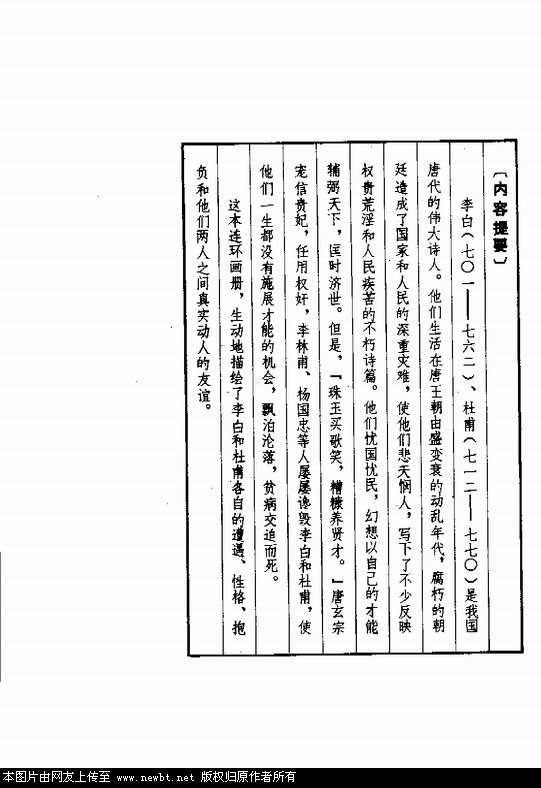 〔内容提要〕
李白（七〇一——七六二）、杜甫（七一二——七七〇）是我国
唐代的伟大诗人。他们生活在唐王朝由盛变衰的动乱年代，腐朽的朝
廷造成了国家和人民的深重灾难，使他们悲天悯人，写下了不少反映
权贵荒淫和人民疾苦的不朽诗篇。他们忧国忧民，幻想以自己的才能
辅弼天下，匡时济世。但是，「珠玉买歌笑，糟糠养贤才。」唐玄宗
宠信贵妃，任用权奸，李林甫、杨国忠等人屡屡谗毁李白和杜甫，使
他们一生都没有施展才能的机会，飘泊沦落，贫病交迫而死。
这本连环画册，生动地描绘了李白和杜甫各自的遭遇、性格、抱
负和他们两人之间真实动人的友谊。
本图片由网友上传至 www.newbt.net 版权归原作者所有